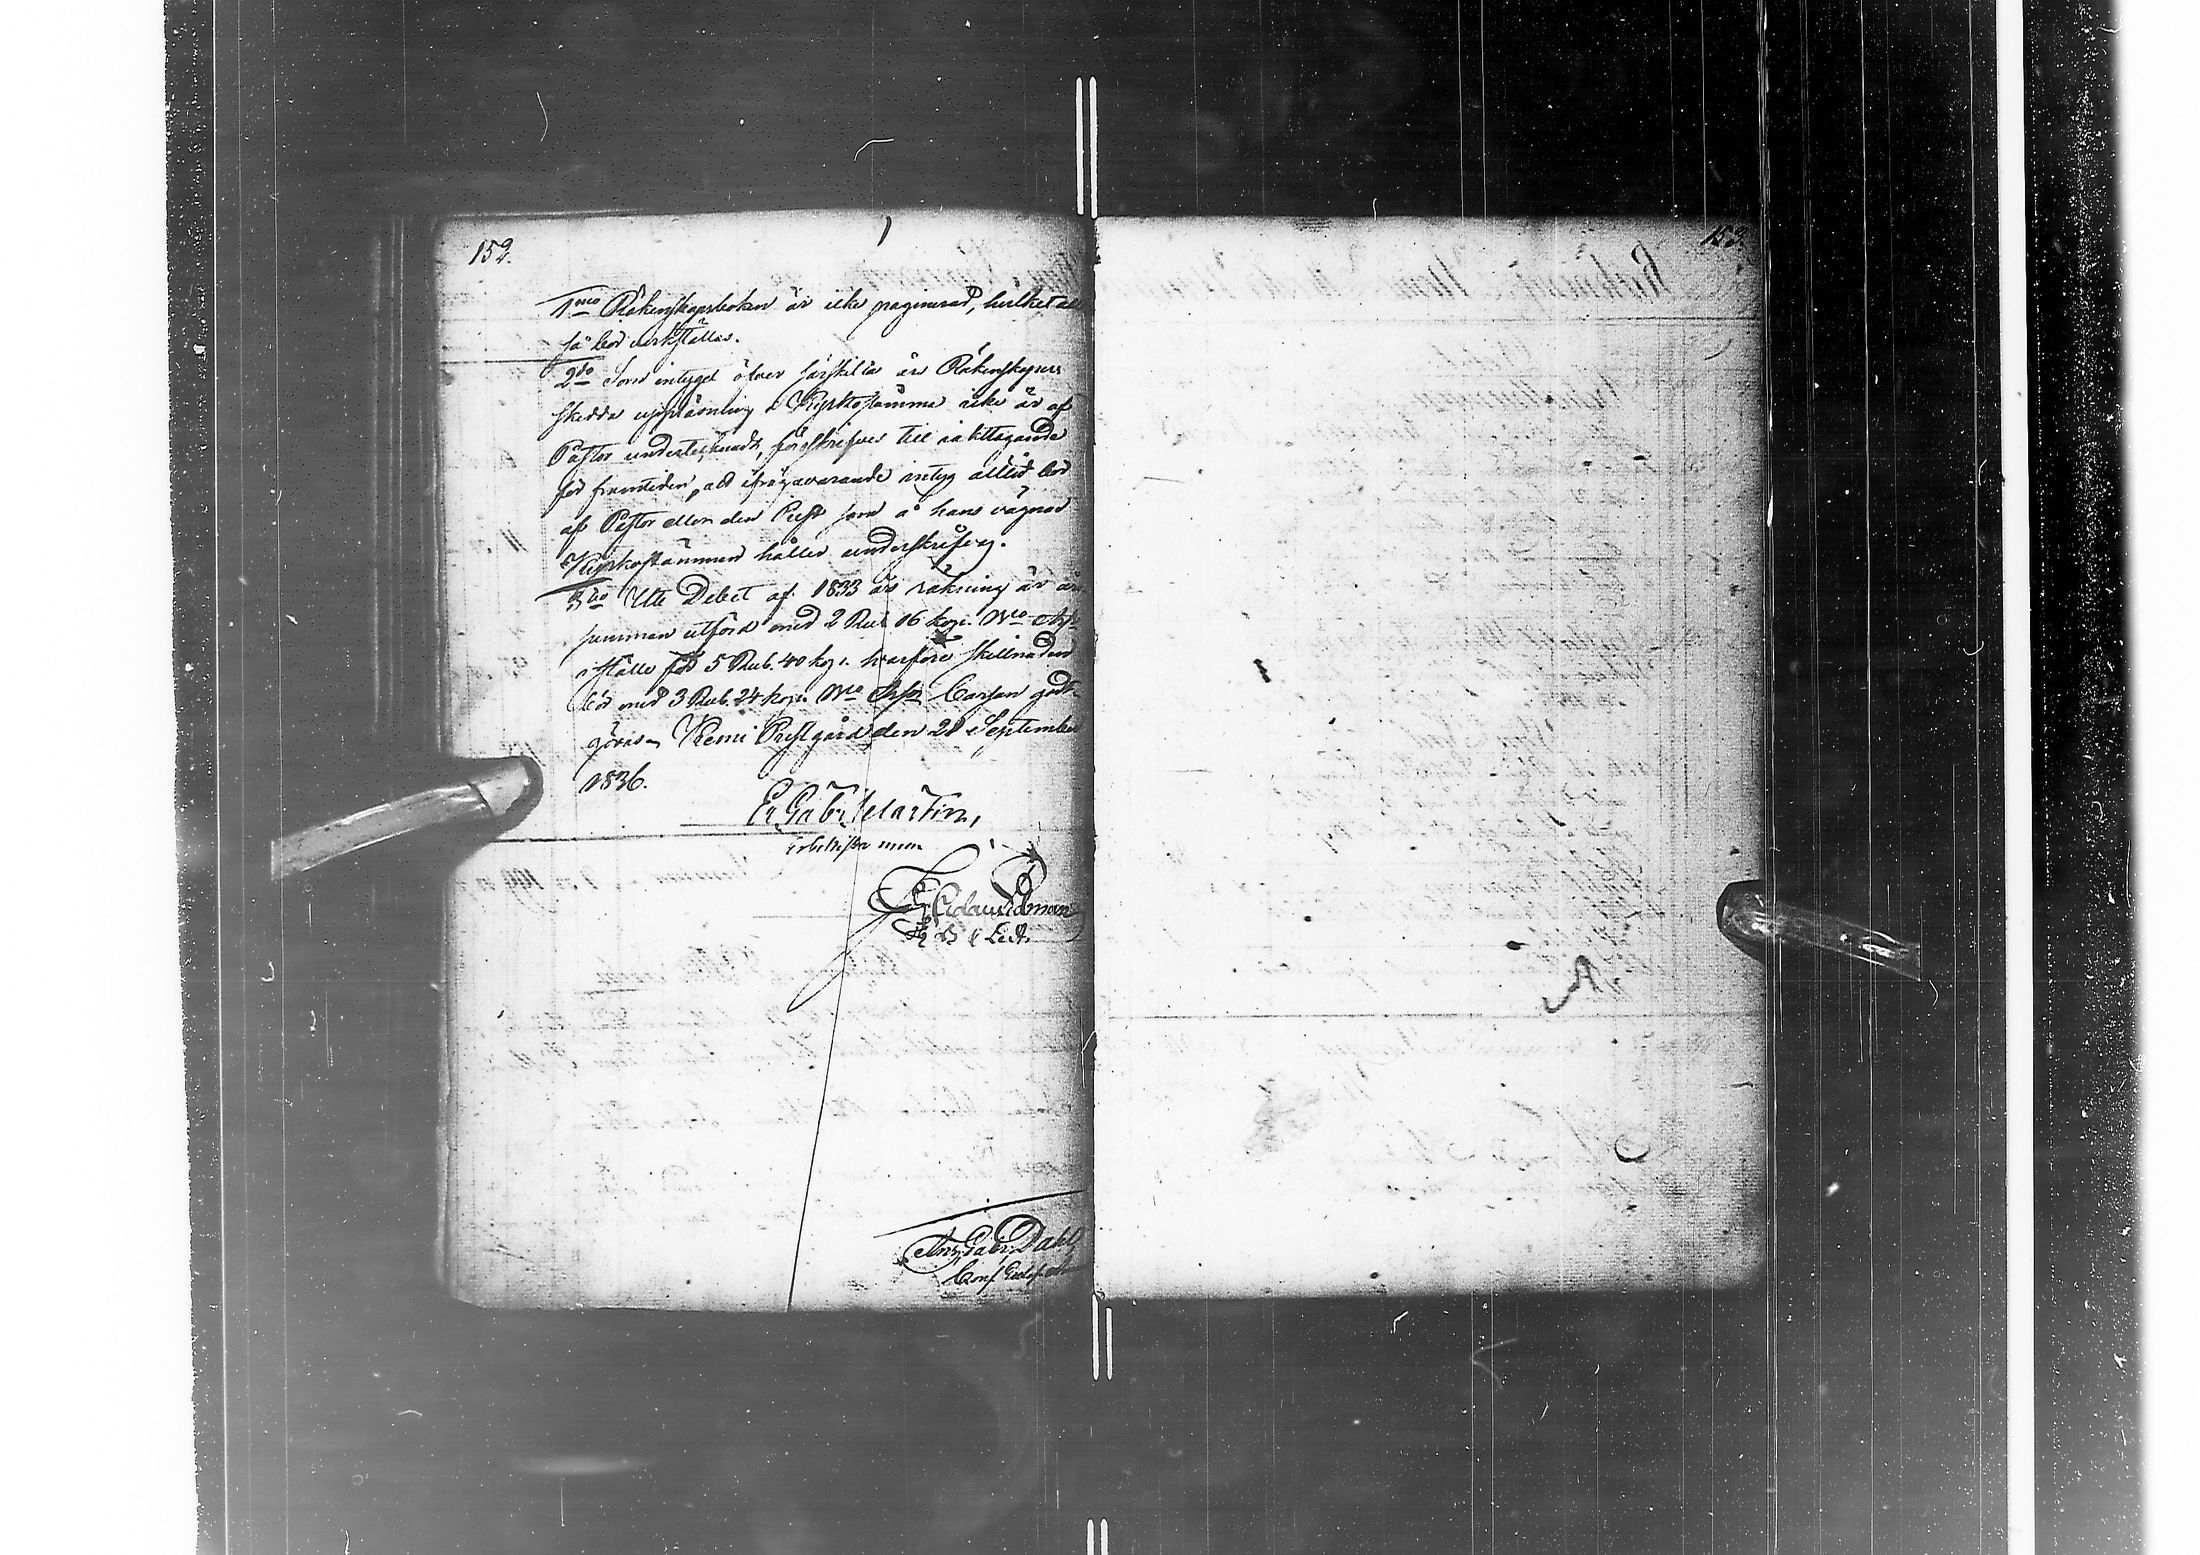 152.
1mo Räkenskapsboken är icke paginerad, hvilket
så bör verkställas.
2do Som intyget öfver särskilda års Räkenskapers
skedda uppläsning i Kyrkostämma icke är af
Pastor undertecknadt, föreskrifves till iakttagande
för framtiden, att ifrågavarande intyg alltid bör
af Pastor eller den Prest som å hans vägnar
Kyrkostämman håller underskrifvas.
3tio Uti Debet af 1833 års räkning är
summan utförd med 2 Rub. 16 kop. Bco Ass.
i ställe för 5 Rub. 40 kop. hvarföre skillnaden
bör med 3 Rub. 24 kop. Bco Ass. Cassan godt-
göras. Kemi Prestgård den 28 September
1836.
Er. Gab. Melartin,
Erbeskop
153.
And. Gabr. Dahl